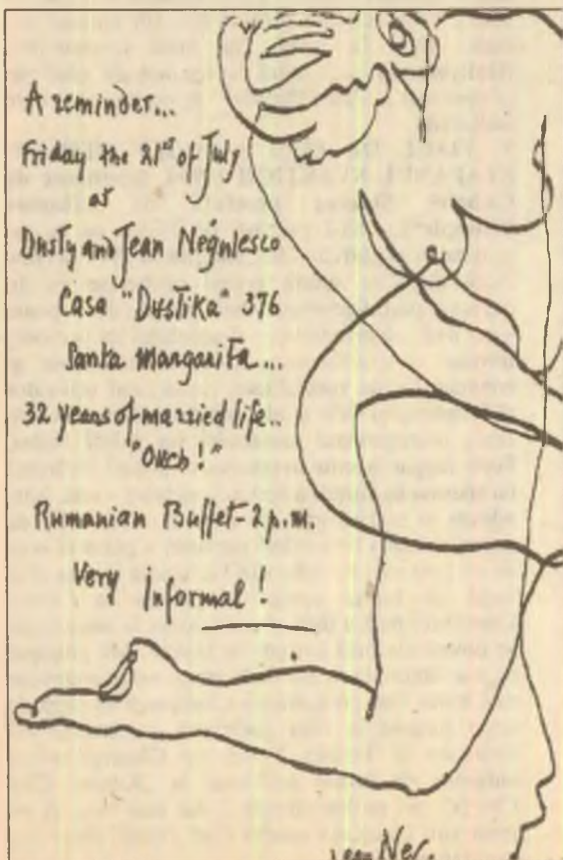 A reminder...
Friday the 21st of July
at
Dusty and Jean Negulesco
Casa "Dustika" 376
Santa Margarita...
32 years of married life..
"Ouch!"
Rumanian Buffet - 2 p.m.
Very Informal!
Jean Ne